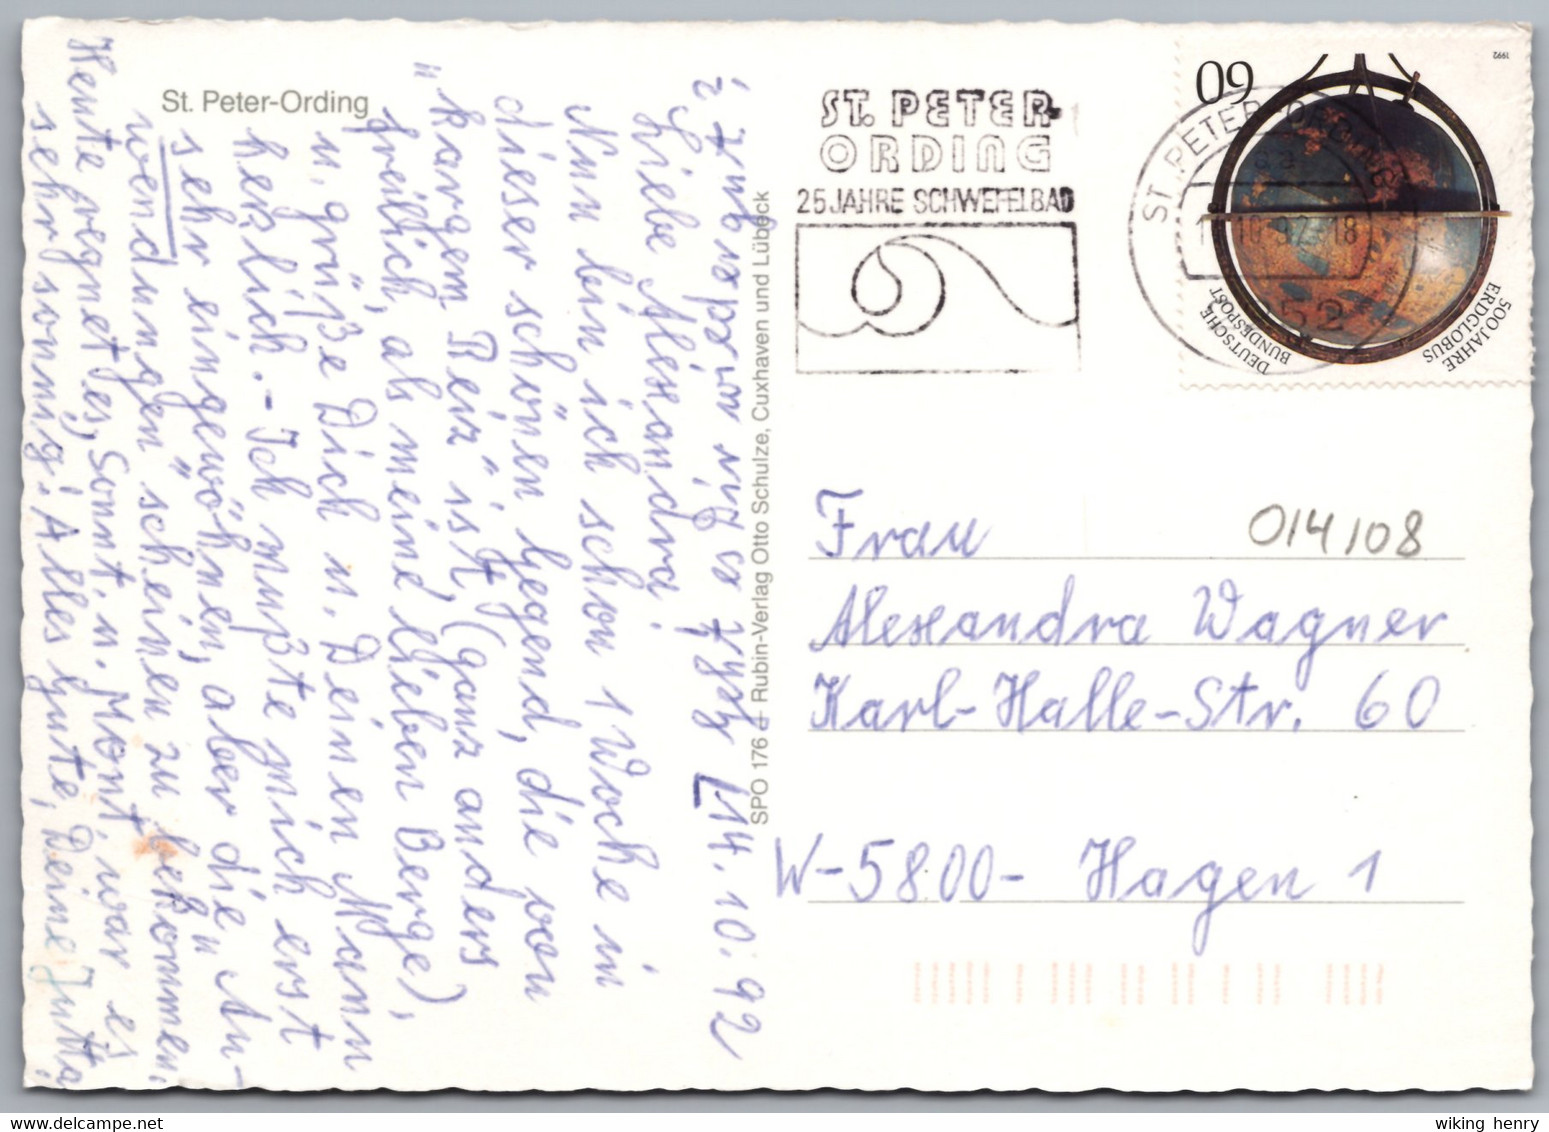 St. Peter-Ording
14.10.92
Liebe Alexandra!
Nun bin ich schon 1 Woche in
dieser schönen Gegend, die von
"kargem Reiz" ist, (ganz anders
freilich, als meine lieben Berge),
u. grüße Dich u. Deinen Mann
herzlich. - Ich mußte mich erst
sehr eingewöhnen, aber die "An-
wendungen" scheinen zu bekommen.
Heute regnet es, Sonnt. u. Mont. war es
sehr sonnig! Alles Gute, Deine Jutta
SPO 176 Rubin-Verlag Otto Schulze, Cuxhaven und Lübeck
ST. PETER-
ORDING
25 JAHRE SCHWEFELBAD
ST. PETER-ORDING
60
1992
DEUTSCHE
BUNDESPOST
500 JAHRE
ERDGLOBUS
014108
Frau
Alexandra Wagner
Karl-Halle-Str. 60
W-5800- Hagen 1
wiking henry